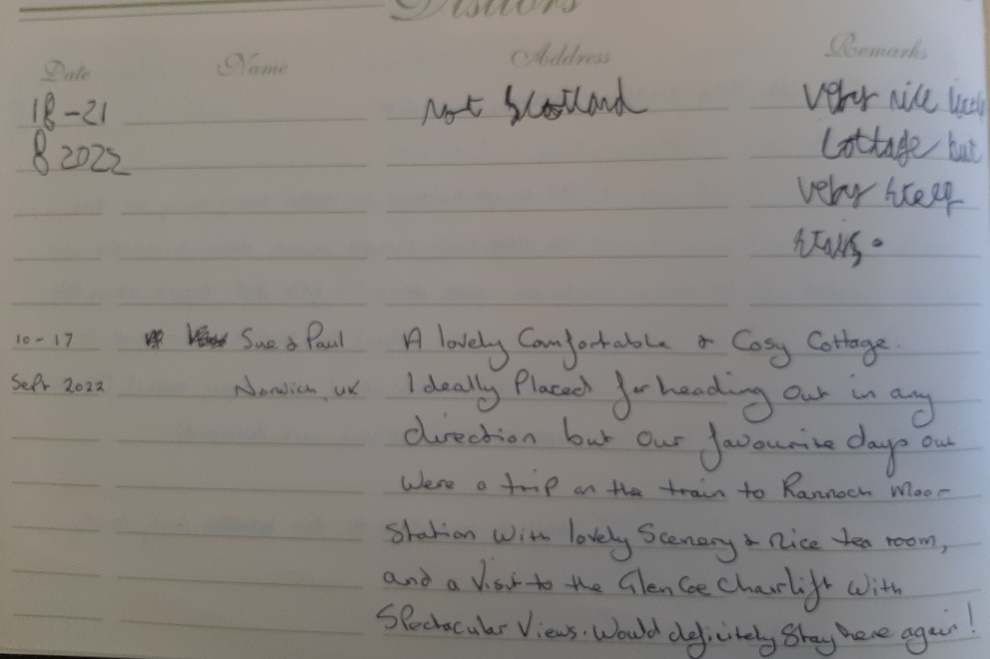 Visitors
Date Name Address Remarks
18-21 not Scotland very nice little
8 2022 Cottage but
very steep
stairs.
10-17 Sue & Paul A lovely Comfortable & Cosy Cottage.
Sept 2022 Norwich, UK Ideally Placed for heading Out in any
direction but our favourite days out
were a trip on the train to Rannoch Moor
Station with lovely Scenery & Nice tea room,
and a Visit to the Glen Coe Chairlift With
Spectacular Views. Would definitely Stay here again!